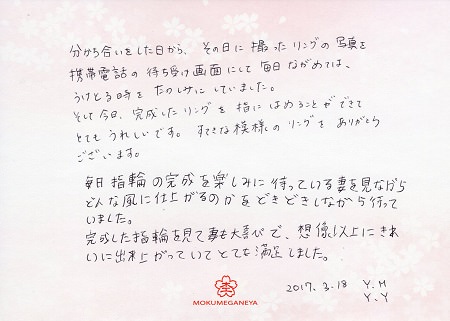 分かち合いをした日から、その日に撮ったリングの写真を
携帯電話の待ち受け画面にして毎日ながめては、
うけとる時をたのしみにしていました。
そして今日、完成したリングを指にはめることができて
とてもうれしいです。すてきな模様のリングをありがとう
ございます。
毎日指輪の完成を楽しみに待っている妻を見ながら
どんな風に仕上がるのかをどきどきしながら待って
いました。
完成した指輪を見て妻も大喜びで、想像以上にきれ
いに出来上がっていてとても満足しました。
2017.3.18 Y.H
Y.Y
MOKUMEGANEYA